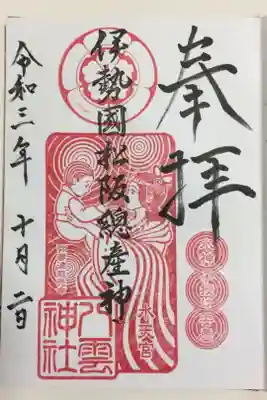 奉拝
伊勢國松阪總産神
八雲神社
令和三年 十月 二日